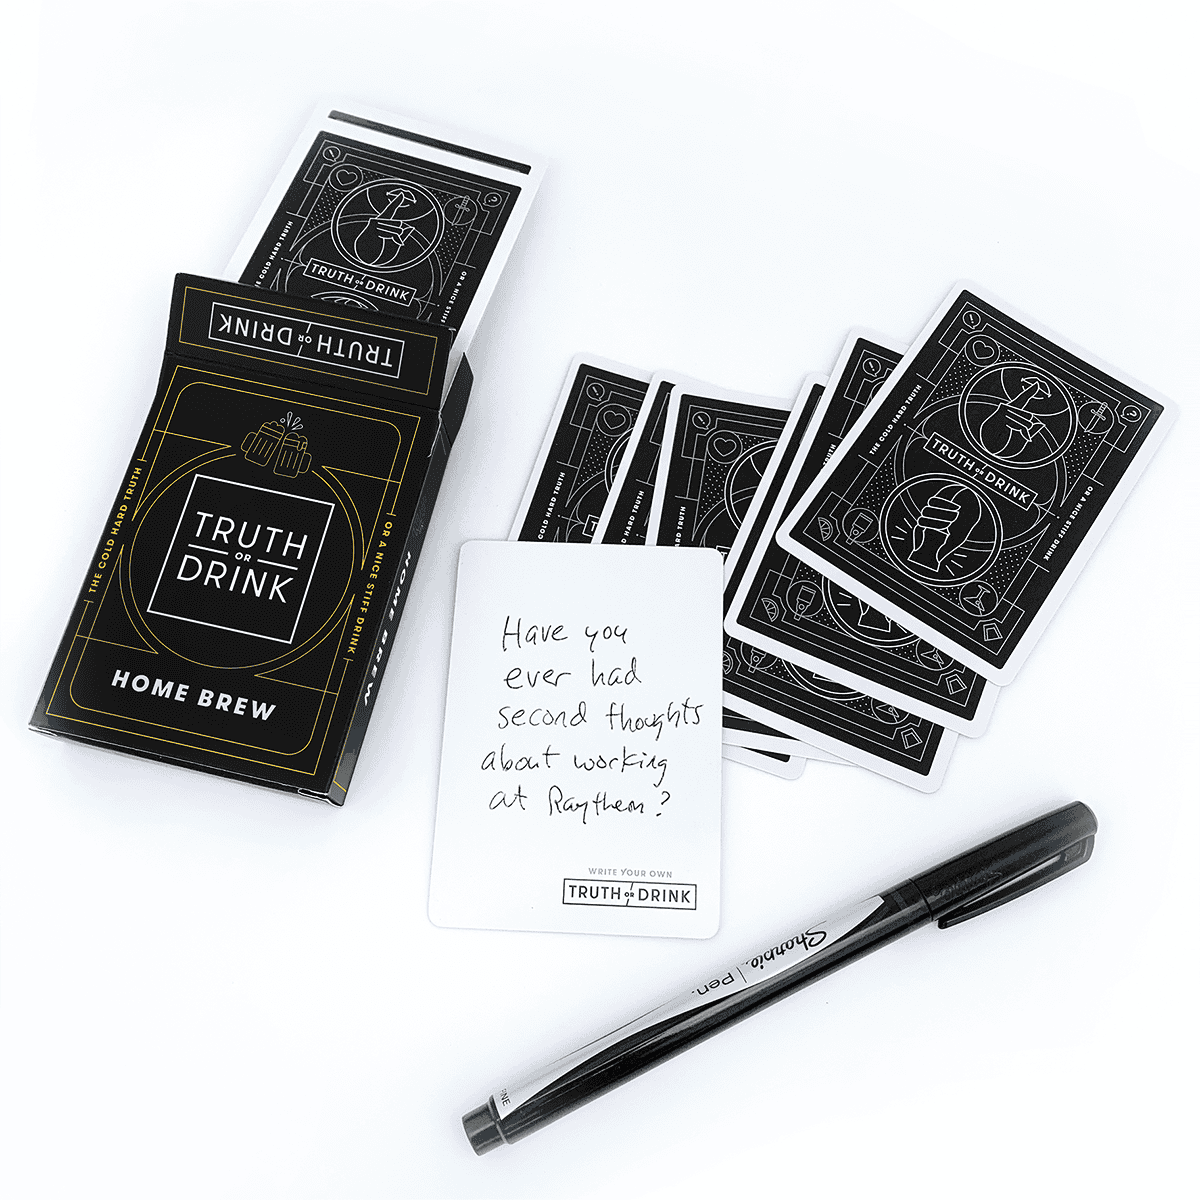 TRUTH OR DRINK
THE COLD HARD TRUTH
OR A NICE STIFF
TRUTH OR DRINK
THE COLD HARD TRUTH
OR A NICE STIFF DRINK
TRUTH
OR
DRINK
HOME BREW
HOME BREW
THE COLD HARD TRUTH
THE COLD HARD TRUTH
TRUTH
TRUTH
THE COLD HARD TRUTH
TRUTH OR DRINK
OR A NICE STIFF DRINK
Have you
ever had
second thoughts
about working
at Raytheon?
WRITE YOUR OWN
TRUTH OR DRINK
Sharpie. | Pen.
FINE